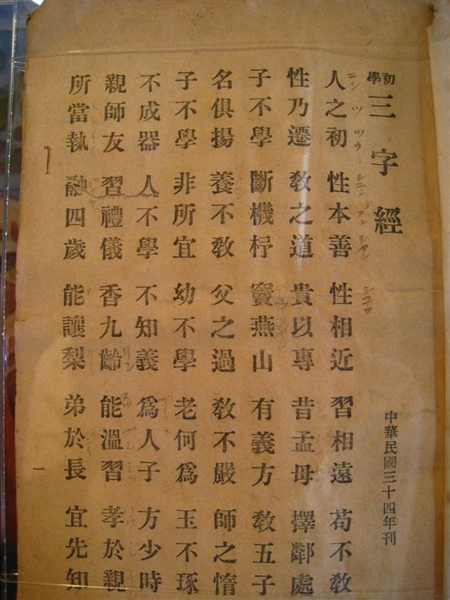 初學
三字經
中華民國三十四年刊
人之初 性本善 性相近 習相遠 苟不敎
性乃遷 敎之道 貴以專 昔孟母 擇鄰處
子不學 斷機杼 竇燕山 有義方 敎五子
名俱揚 養不敎 父之過 敎不嚴 師之惰
子不學 非所宜 幼不學 老何爲 玉不琢
不成器 人不學 不知義 爲人子 方少時
親師友 習禮儀 香九齡 能溫習 孝於親
所當執 融四歲 能讓梨 弟於長 宜先知
一